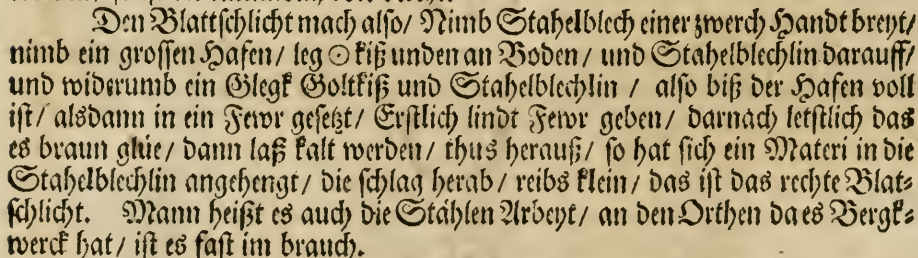 Den Blattschlicht mach also/ Nimb Stahelblech einer zwerch Handt breyt/
nimb ein grossen Hafen/ leg ☉ kiß unden an Boden/ und Stahelblechlin darauff/
und widerumb ein Glegk Goltkiß und Stahelblechlin / also biß der Hafen voll
ist/ alsdann in ein Fewr gesetzt/ Erstlich lindt Fewr geben/ darnach letstlich das
es braun glüe/ dann laß kalt werden/ thus herauß/ so hat sich ein Materi in die
Stahelblechlin angehengt/ die schlag herab/ reibs klein/ das ist das rechte Blat-
schlicht. Mann heißt es auch die Stählen Arbeyt/ an den Orthen da es Bergk-
werck hat/ ist es fast im brauch.